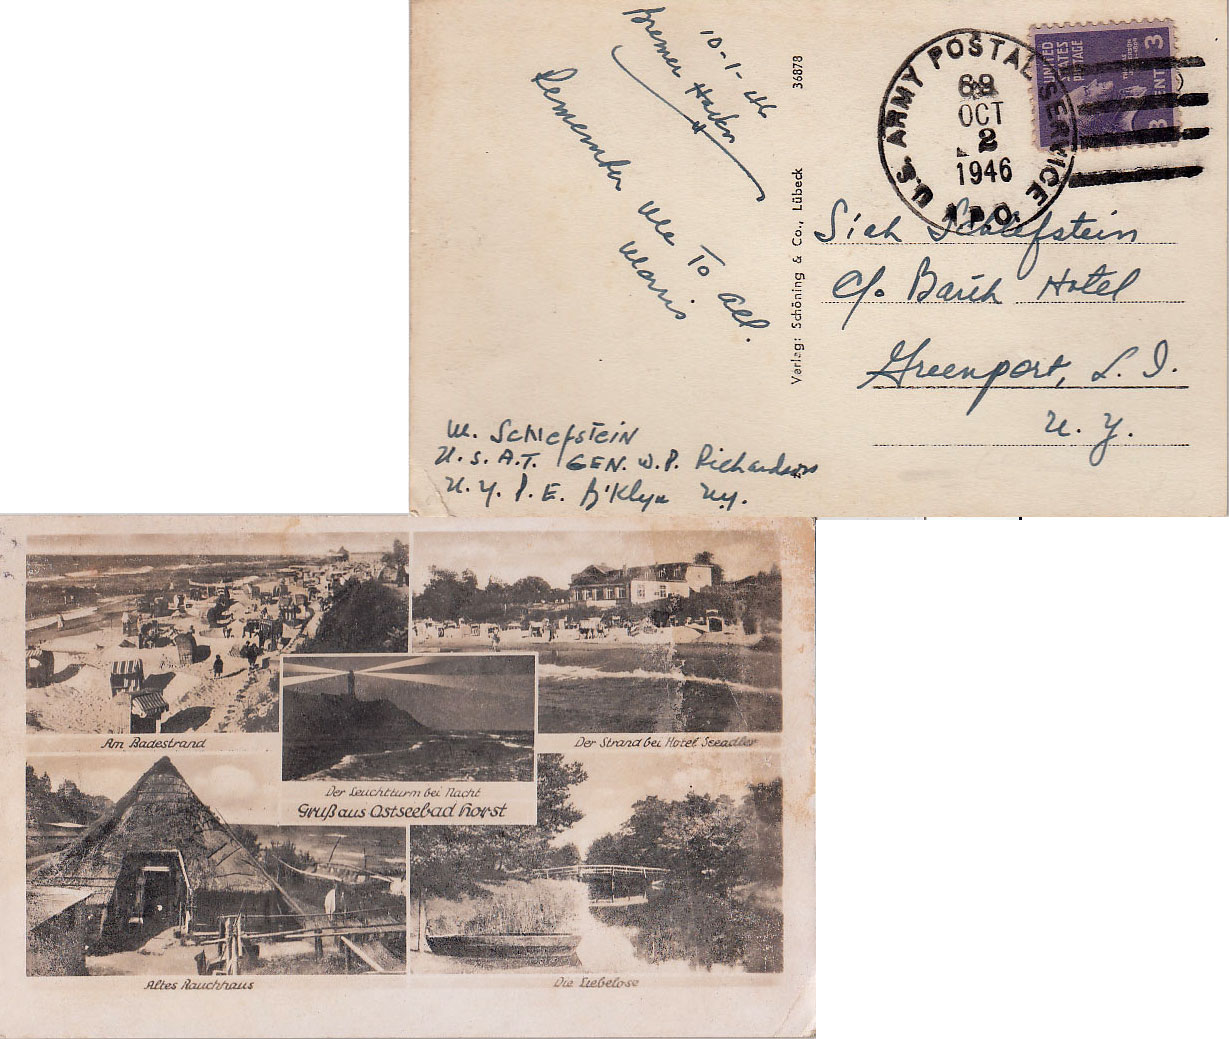 Bremer Haven
10-1-46
Remember Me To All.
Morris
M. Schlefstein
U.S.A.T. GEN. W.P. Richardson
N.Y. P.E. B'klyn N.Y.
36878
Verlag: Schöning & Co., Lübeck
U.S. ARMY POSTAL SERVICE
A.P.O.
69
OCT
2
1946
UNITED
STATES
POSTAGE
3 CENTS 3
Schlefstein
c/o Hotel
Greenport, L. I.
N. Y.
Am Badestrand
Der Strand bei Hotel Seeadler
Der Leuchtturm bei Nacht
Gruß aus Ostseebad Horst
Altes Rauchhaus
Die Liebelose